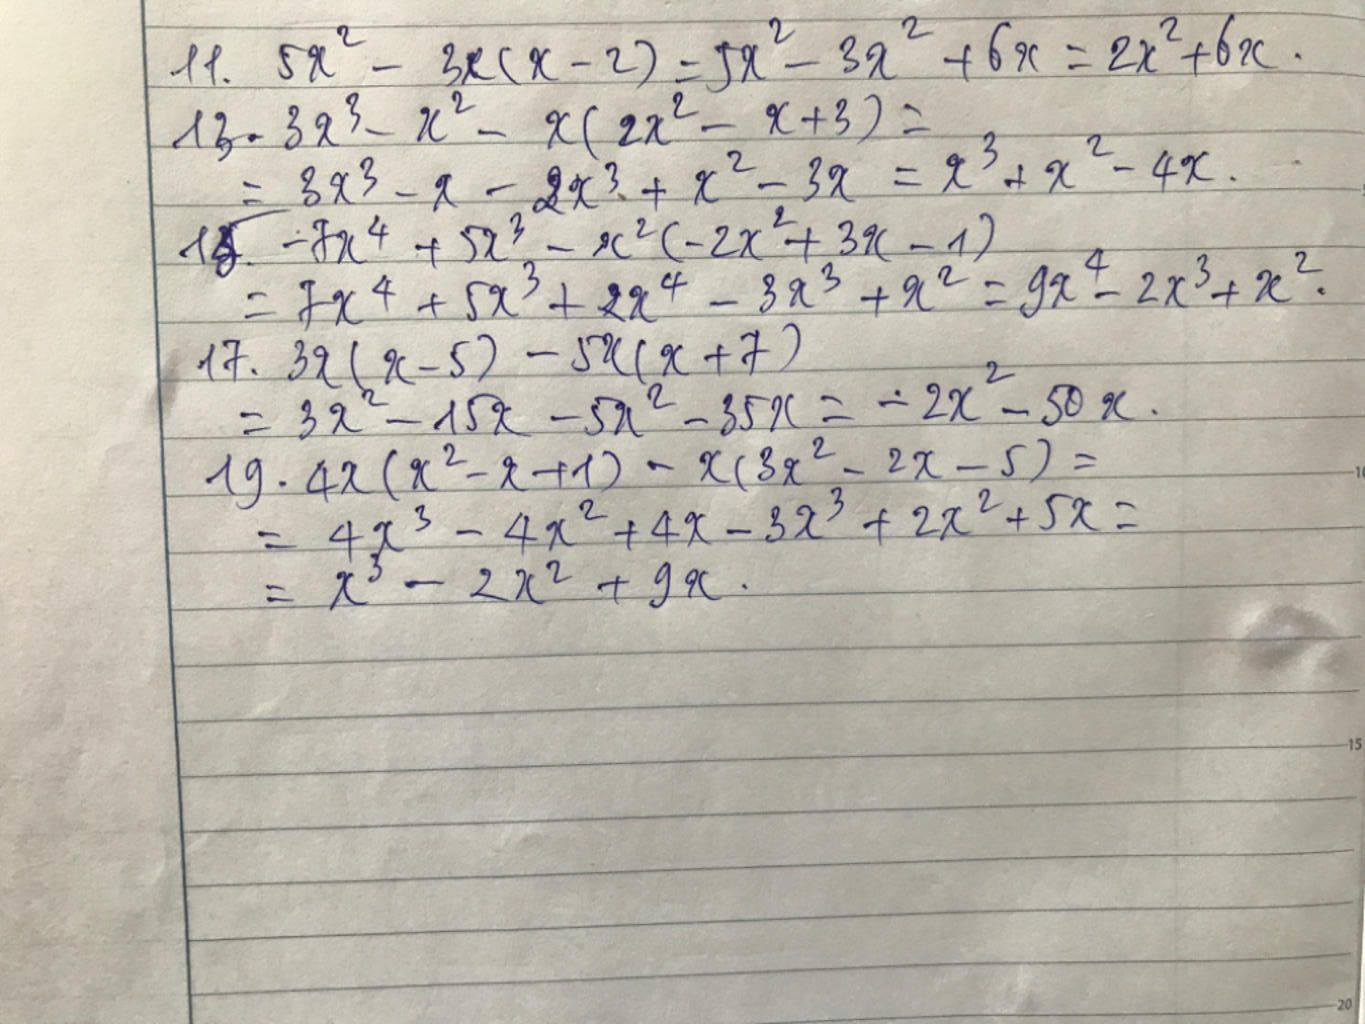 11. 5x² - 3x(x-2) = 5x² - 3x² + 6x = 2x² + 6x.
13. 3x³ - x² - x(2x² - x + 3) =
= 3x³ - x - 2x³ + x² - 3x = x³ + x² - 4x.
15. -7x⁴ + 5x³ - x²(-2x² + 3x - 1)
= 7x⁴ + 5x³ + 2x⁴ - 3x³ + x² = 9x⁴ - 2x³ + x².
17. 3x(x-5) - 5x(x+7)
= 3x² - 15x - 5x² - 35x = -2x² - 50x.
19. 4x(x² - x + 1) - x(3x² - 2x - 5) =
10
= 4x³ - 4x² + 4x - 3x³ + 2x² + 5x =
= x³ - 2x² + 9x.
15
20